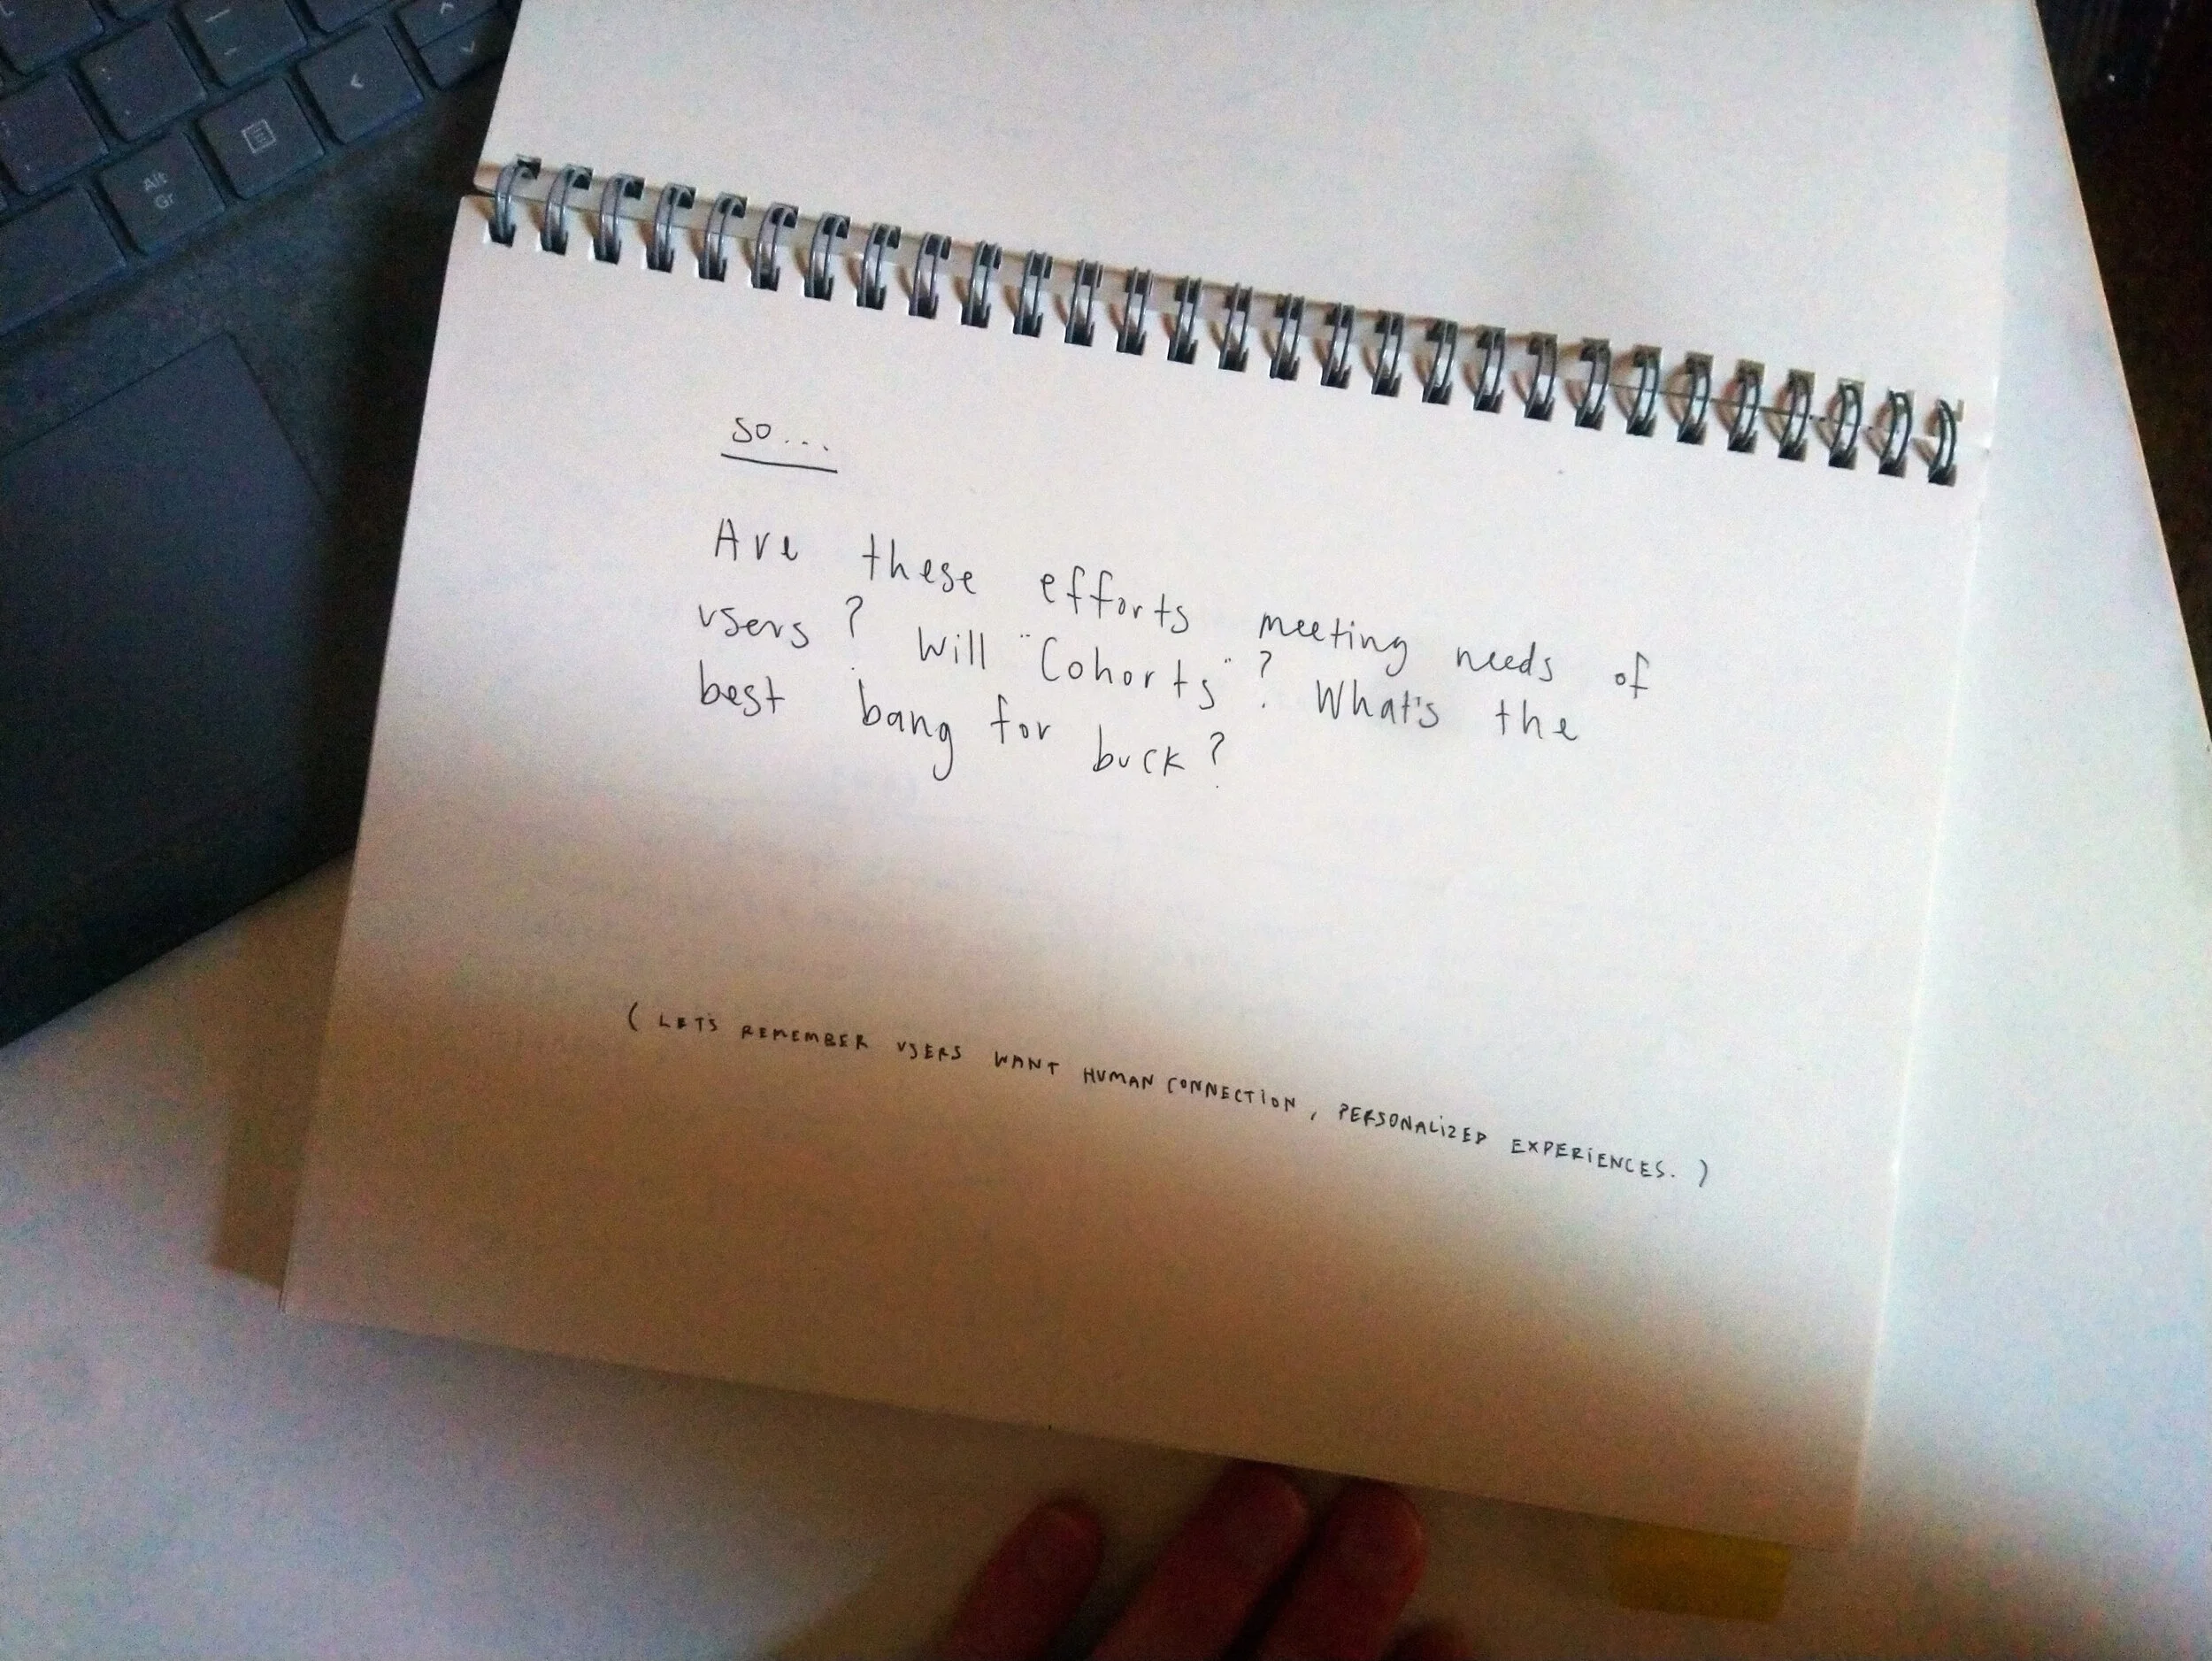 Alt
Gr
so...
Are these efforts meeting needs of
users? Will "Cohorts"? What's the
best bang for buck?
(LET'S REMEMBER USERS WANT HUMAN CONNECTION, PERSONALIZED EXPERIENCES.)